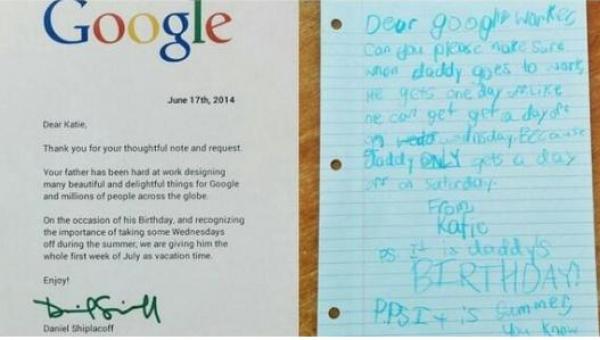 Google
June 17th, 2014
Dear Katie,
Thank you for your thoughtful note and request.
Your father has been hard at work designing
many beautiful and delightful things for Google
and millions of people across the globe.
On the occasion of his Birthday, and recognizing
the importance of taking some Wednesdays
off during the summer, we are giving him the
whole first week of July as vacation time.
Enjoy!
Daniel Shiplacoff
Dear google worker
Can you please make sure
when daddy goes to work
He gets one day off. Like
he can get get a day off
on
Daddy ONLY gets a day
off on Saturday.
From
Katie
P.S. It is daddy's
BIRTHDAY!
P.P.S It is Summer,
You Know